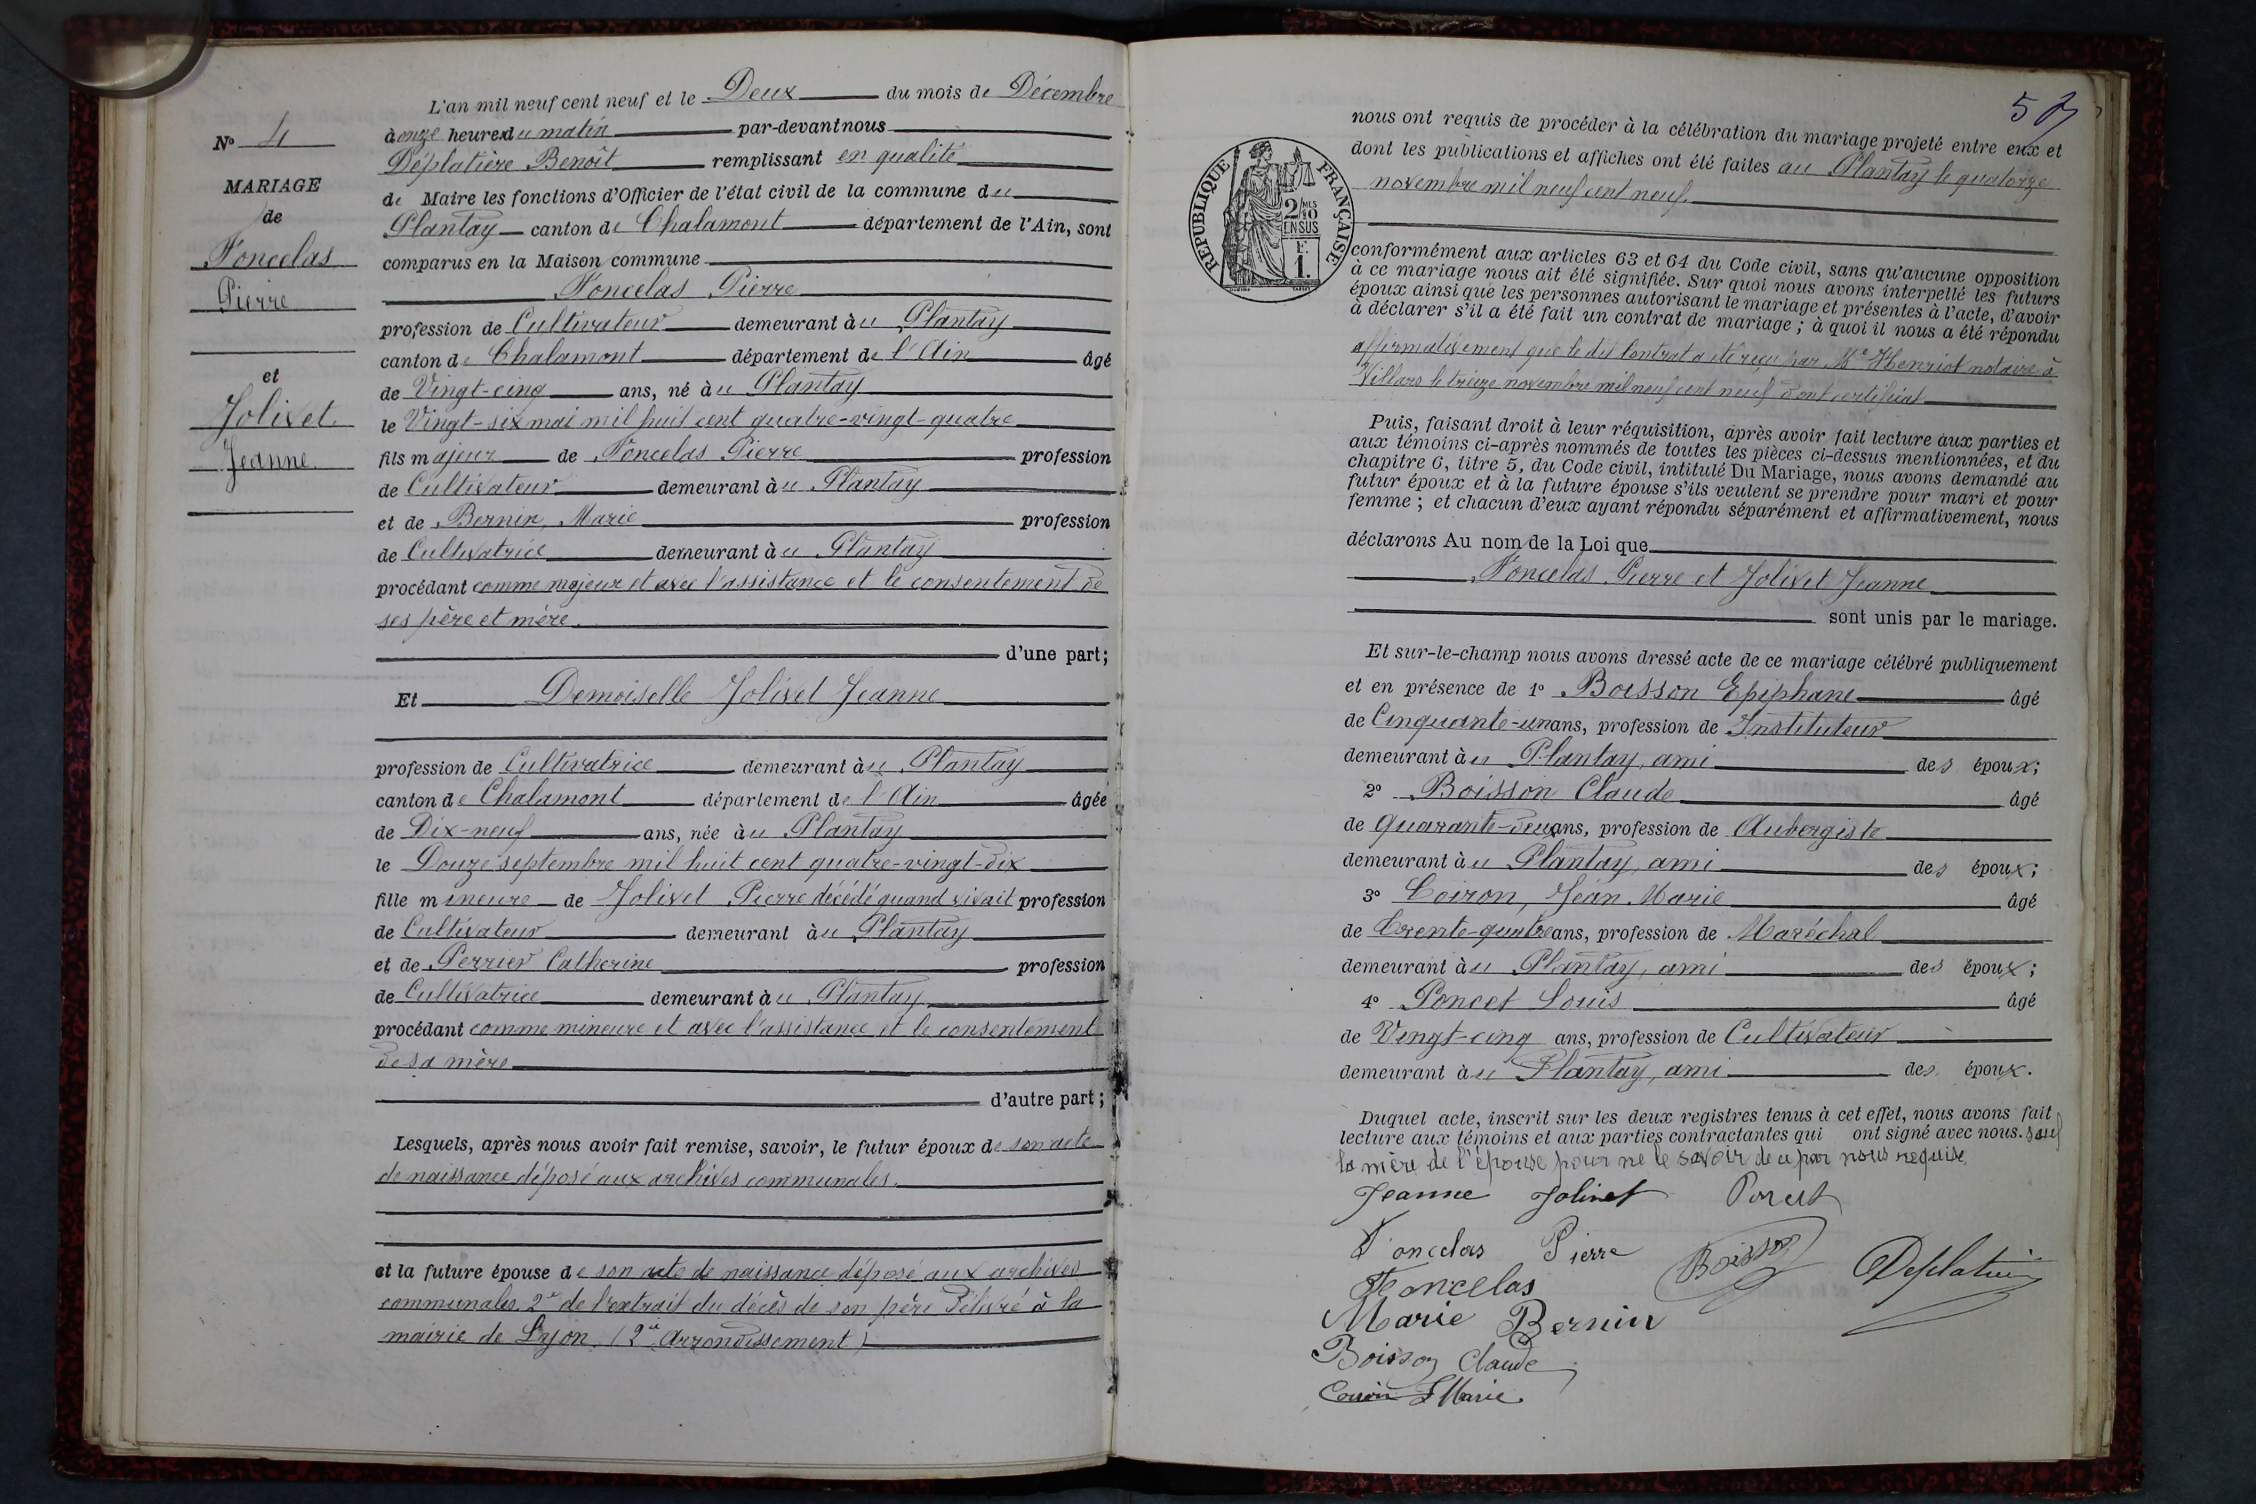 L'an mil neuf cent neuf et le Deux du mois de Décembre
à onze heures du matin par-devant nous
Déplatière Benoît remplissant en qualité
de Maire les fonctions d'Officier de l'état civil de la commune du
Plantay canton de Chalamont département de l'Ain, sont
comparus en la Maison commune
Foncelas Pierre
profession de Cultivateur demeurant au Plantay
canton de Chalamont département de l'Ain âgé
de Vingt-cinq ans, né au Plantay
le Vingt-six mai mil huit cent quatre-vingt-quatre
fils majeur de Foncelas Pierre profession
de Cultivateur demeurant au Plantay
et de Bernin, Marie profession
de Cultivatrice demeurant au Plantay
procédant comme majeur et avec l'assistance et le consentement de
ses père et mère.
d'une part;
Et Demoiselle Jolivet Jeanne
profession de Cultivatrice demeurant au Plantay
canton de Chalamont département de l'Ain âgée
de Dix-neuf ans, née au Plantay
le Douze septembre mil huit cent quatre-vingt-dix
fille mineure de Jolivet Pierre décédé quand vivait profession
de Cultivateur demeurant au Plantay
et de Perrier Catherine profession
de Cultivatrice demeurant au Plantay
procédant comme mineure et avec l'assistance et le consentement
de sa mère
d'autre part;
Lesquels, après nous avoir fait remise, savoir, le futur époux de son acte
de naissance déposé aux archives communales.
et la future épouse de son acte de naissance déposé aux archives
communales. 2° de l'extrait du décès de son père délivré à la
mairie de Lyon. (2e Arrondissement)
No 4
MARIAGE
de
Foncelas
Pierre
et
Jolivet
Jeanne
57
nous ont requis de procéder à la célébration du mariage projeté entre eux et
dont les publications et affiches ont été faites au Plantay le quatorze
novembre mil neuf cent neuf.
REPUBLIQUE FRANÇAISE
2/10 MES
EN SUS
F.
1.
conformément aux articles 63 et 64 du Code civil, sans qu'aucune opposition
à ce mariage nous ait été signifiée. Sur quoi nous avons interpellé les futurs
époux ainsi que les personnes autorisant le mariage et présentes à l'acte, d'avoir
à déclarer s'il a été fait un contrat de mariage; à quoi il nous a été répondu
affirmativement que le dit Contrat a été reçu par Me Henriot notaire à
Villars le treize novembre mil neuf cent neuf dont certificat
Puis, faisant droit à leur réquisition, après avoir fait lecture aux parties et
aux témoins ci-après nommés de toutes les pièces ci-dessus mentionnées, et du
chapitre 6, titre 5, du Code civil, intitulé Du Mariage, nous avons demandé au
futur époux et à la future épouse s'ils veulent se prendre pour mari et pour
femme; et chacun d'eux ayant répondu séparément et affirmativement, nous
déclarons Au nom de la Loi que
Foncelas Pierre et Jolivet Jeanne
sont unis par le mariage.
Et sur-le-champ nous avons dressé acte de ce mariage célébré publiquement
et en présence de 1° Boisson Epiphane âgé
de Cinquante-un ans, profession de Instituteur
demeurant au Plantay, ami des époux;
2° Boisson Claude âgé
de Quarante-deux ans, profession de Aubergiste
demeurant au Plantay, ami des époux;
3° Coiron, Jean Marie âgé
de Trente-quatre ans, profession de Maréchal
demeurant au Plantay, ami des époux;
4° Poncet Louis âgé
de Vingt-cinq ans, profession de Cultivateur
demeurant au Plantay, ami des époux.
Duquel acte, inscrit sur les deux registres tenus à cet effet, nous avons fait
lecture aux témoins et aux parties contractantes qui ont signé avec nous. sauf
la mère de l'épouse pour ne le savoir de ce par nous requise.
Jeanne Jolivet Poncet
Foncelas Pierre Boisson Deplatière
Foncelas
Marie Bernin
Boisson Claude
Coiron J Marie